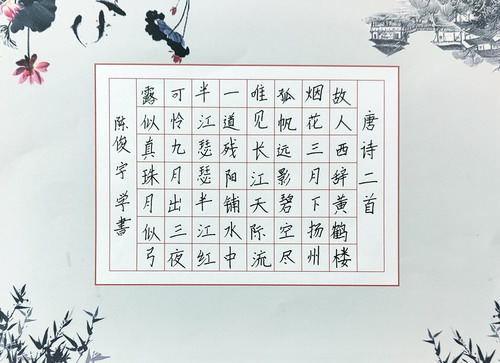 唐诗二首
故人西辞黄鹤楼
烟花三月下扬州
孤帆远影碧空尽
唯见长江天际流
一道残阳铺水中
半江瑟瑟半江红
可怜九月出三夜
露似真珠月似弓
陈俊宇 学書